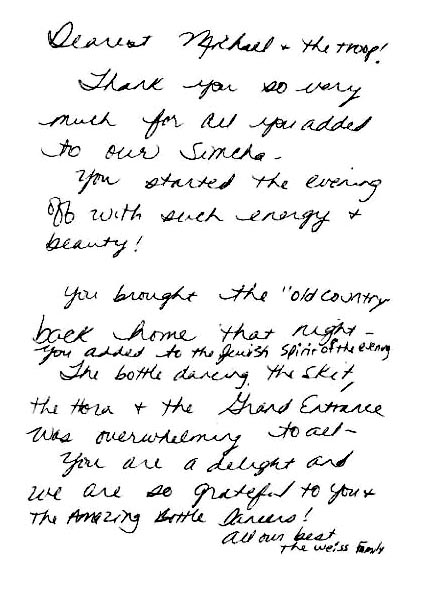 Dearest Michael + the troop!
Thank you so very
much for all you added
to our Simcha -
You started the evening
off with such energy +
beauty!
You brought the "old country
back home that night -
You added to the Jewish Spirit of the evening
The bottle dancing, the skit,
the Hora + the Grand Entrance
was overwhelming to all -
You are a delight and
we are so grateful to you +
The Amazing Bottle Dancers!
all our best
The Weiss Family